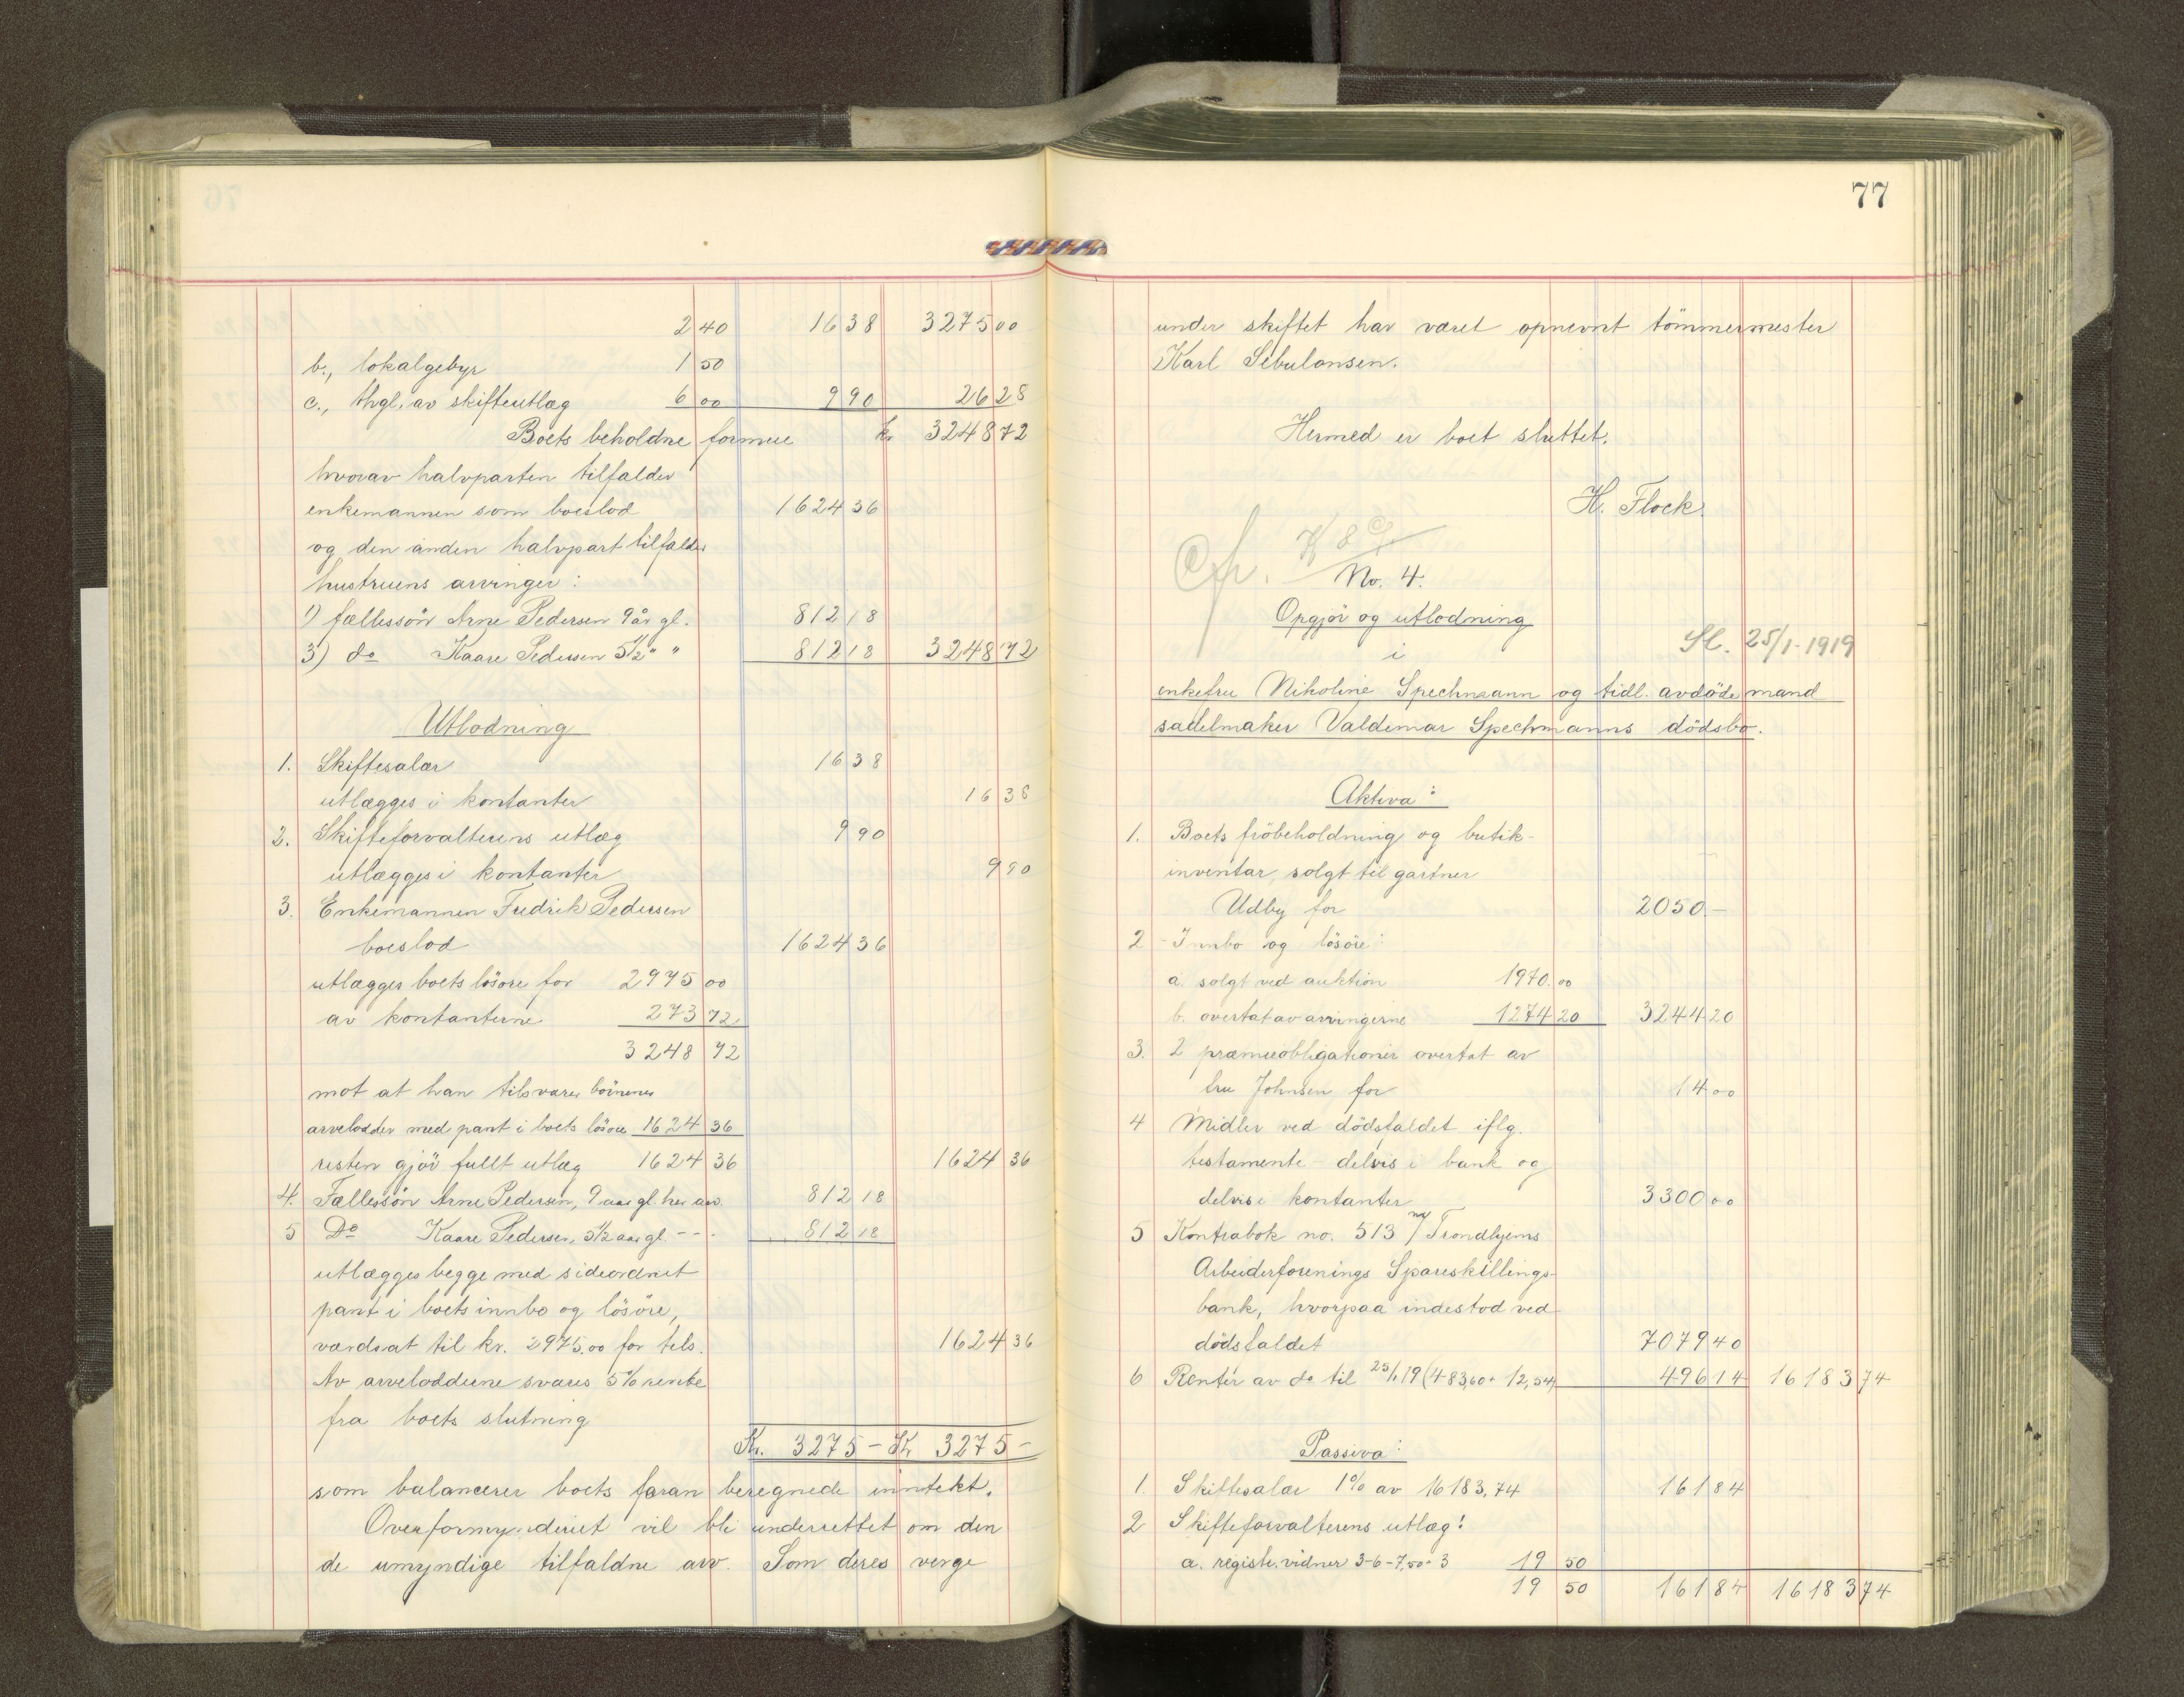 2 40 16 38 3275 00
b., lokalgebyr 1 50
c., thgl. av skifteutlæg 6 00 9 90 26 28
Boets beholdne formue kr 3248 72
hvorav halvparten tilfalder
enkemannen som boeslod 1624 36
og den anden halvpart tilfalder
hustruens arvinger:
1) fællessön Arne Pedersen 9 år gl. 812 18
3) do Kaare Pedersen 5 1/2 " " 812 18 3248 72
Utlodning
1. Skiftesalær 16 38
utlægges i kontanter 16 38
2. Skifteforvalterens utlæg 9 90
utlægges i kontanter 9 90
3. Enkemannen Fredrik Pedersen
boeslod 1624 36
utlægges boets lösöre for 2975 00
av kontanterne 273 72
3248 72
mot at han tilsvarer börnenes
arvelodder med pant i boets lösöre 1624 36
resten gjör fullt utlæg 1624 36 1624 36
4. Fællessön Arne Pedersen, 9 aar gl. hs arv. 812 18
5 Do Kaare Pedersen, 5 1/2 aar gl. - - . 812 18
utlægges begge med sideordnet
pant i boets innbo og lösöre,
værdsat til kr. 2975.00 for tils. 1624 36
Av arveloddene svares 5% rente
fra boets slutning
Kr. 3275 - Kr 3275 -
som balancerer boets foran beregnede inntekt.
Overformynderiet vil bli underrettet om den
de umyndige tilfaldne arv. Som deres verge
77
under skiftet har været opnevnt tömmermester
Karl Sebulonsen.
Hermed er boet sluttet.
H. Flock.
No. 4.
Opgjör og utlodning
Sl. 25/1-1919
i
enkefru Nikoline Spechmann og tidl. avdöde mand
sadelmaker Valdemar Spechmanns dödsbo.
Aktiva:
1. Boets fröbeholdning og butik-
inventar, solgt til gartner
Udby for 2050 -
2 - Innbo og lösöre:
a. solgt ved auktion 1970. 00
b. overtat av arvingerne 1274 20 3244 20
3. 2 præmieobligationer overtat av
fru Johnsen for 14 00
4 Midler ved dödsfaldet iflg.
testamente - delvis i bank og
delvis i kontanter 3300 00
5 Kontrabok no. 513 / Trondhjems
Arbeiderforenings Spareskillings-
bank, hvorpaa indestod ved
dödsfaldet 7079 40
6 Renter av do til 25/1 19 (483,60 + 12,54) 496 14 16183 74
Passiva:
1. Skiftesalær 1% av 16183,74 161 84
2 Skifteforvalterens utlæg:
a. registr. vidner 3-6-7,50-3 19 50
19 50 161 84 16183 74